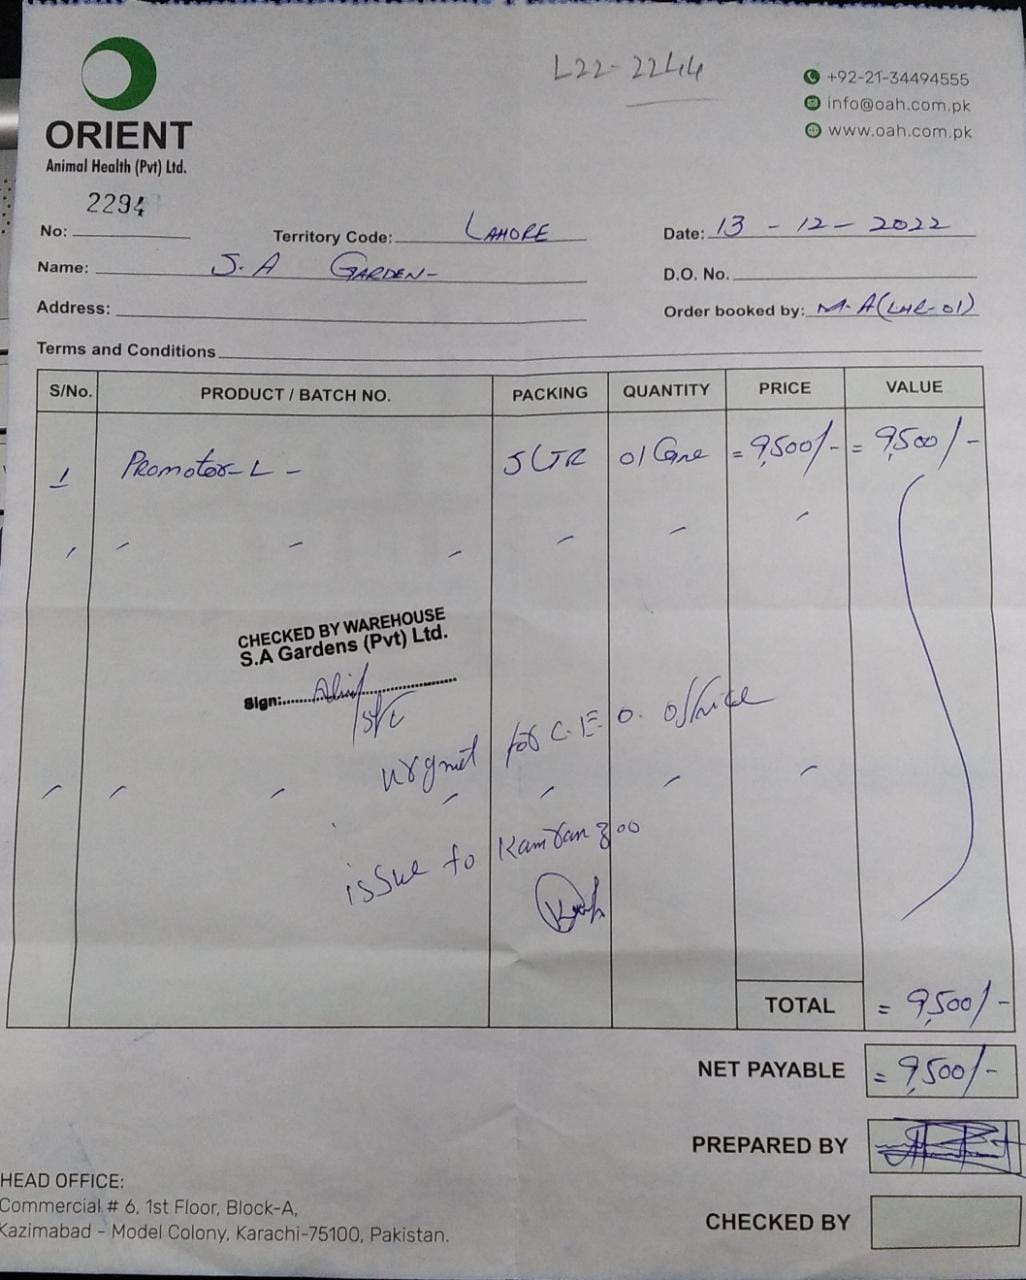 L22-2244
+92-21-34494555
info@oah.com.pk
www.oah.com.pk
ORIENT
Animal Health (Pvt) Ltd.
2294
No:
Territory Code: LAHORE
Date: 13 - 12 - 2022
Name: S.A GARDEN-
D.O. No.
Address:
Order booked by: M.A(LHR-01)
Terms and Conditions
S/No. PRODUCT / BATCH NO. PACKING QUANTITY PRICE VALUE
1 Promotor-L - 5 LTR 01 Cane = 9,500/- = 9,500/-
CHECKED BY WAREHOUSE
S.A Gardens (Pvt) Ltd.
Sign:
urgnet for C.E.O. office
issue to Kamran zoo
TOTAL = 9,500/-
NET PAYABLE = 9,500/-
PREPARED BY
CHECKED BY
HEAD OFFICE:
Commercial # 6, 1st Floor, Block-A,
Kazimabad - Model Colony, Karachi-75100, Pakistan.